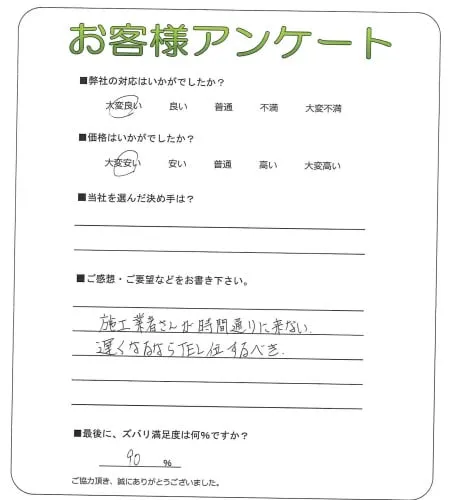 お客様アンケート
■弊社の対応はいかがでしたか？
大変良い 良い 普通 不満 大変不満
■価格はいかがでしたか？
大変安い 安い 普通 高い 大変高い
■当社を選んだ決め手は？
■ご感想・ご要望などをお書き下さい。
施工業者さんが時間通りに来ない.
遅くなるならTEL位するべき.
■最後に、ズバリ満足度は何%ですか？
90 %
ご協力頂き、誠にありがとうございました。